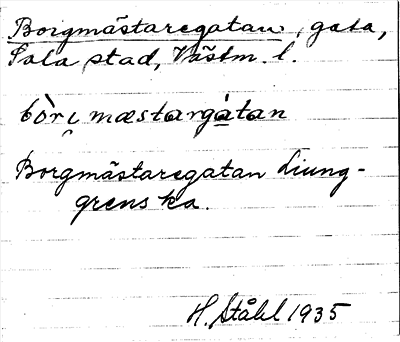 Borgmästaregatan, gata,
Sala stad, Västm. l.
bòrι̨mæstargàtan
Borgmästaregatan Liung-
grenska.
H. Ståhl 1935